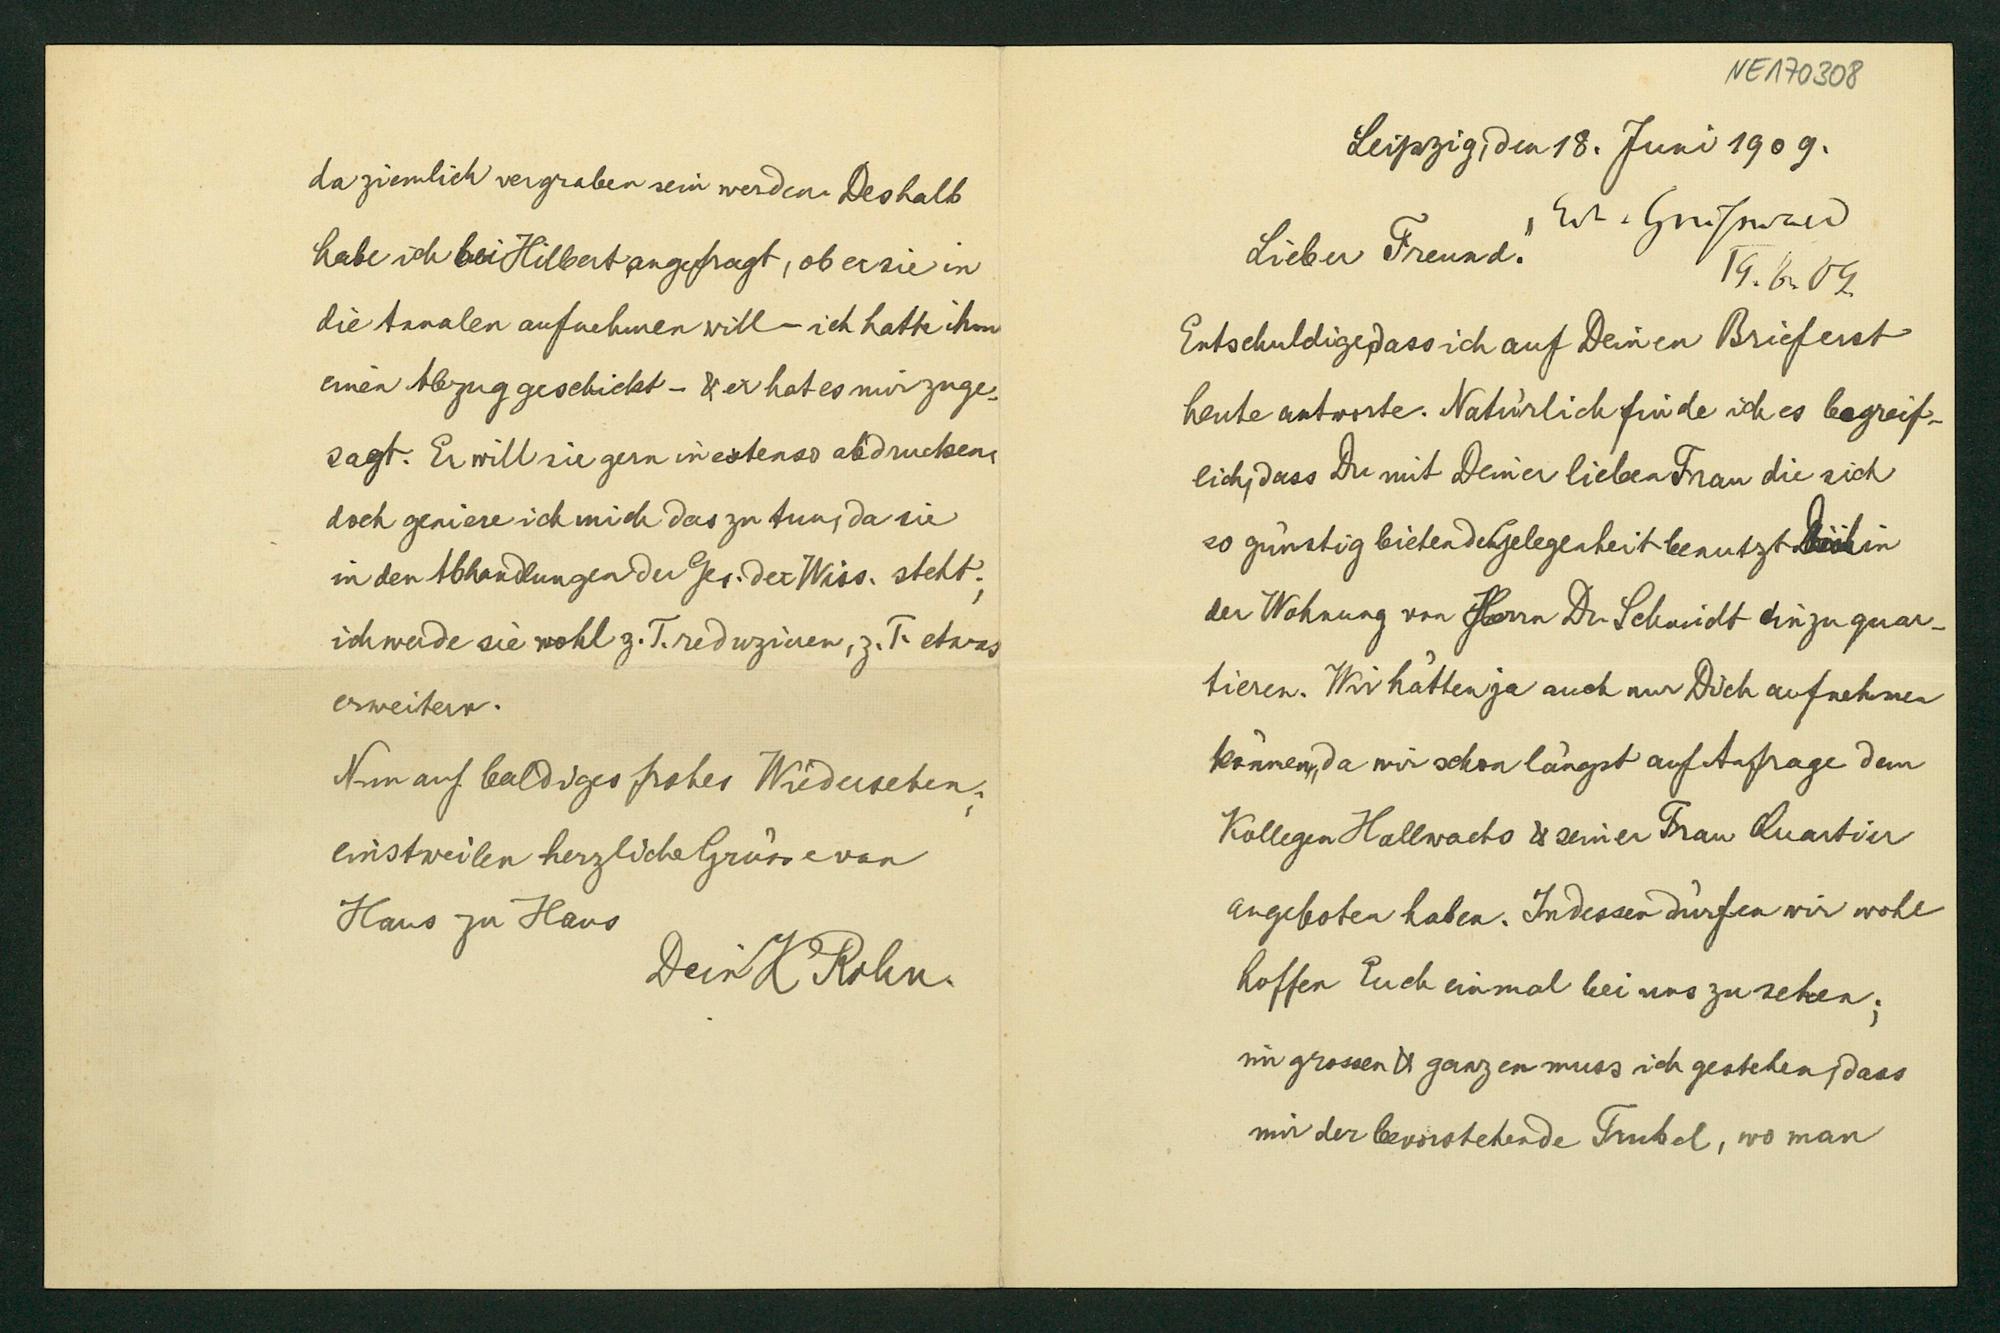 NE170308
Leipzig, den 18. Juni 1909.
Greifswald
19.6.09
Lieber Freund!
Entschuldige, dass ich auf Deinen Brief erst
heute antworte. Natürlich finde ich es begreif-
lich, dass Du mit Deiner lieben Frau die sich
so günstig bietende Gelegenheit benutzt in
der Wohnung von Herrn Dr. Schmidt einzuquar-
tieren. Wir hätten ja auch nur Dich aufnehmen
können, da wir schon längst auf Anfrage dem
Kollegen Hallwachs & seiner Frau Quartier
angeboten haben. Indessen dürfen wir wohl
hoffen Euch einmal bei uns zu sehen;
im grossen & ganzen muss ich gestehen, dass
mir der bevorstehende Trubel, wo man
da ziemlich vergraben sein werden. Deshalb
habe ich bei Hilbert angefragt, ob er sie in
die Annalen aufnehmen will – ich hatte ihm
einen Abzug geschickt – & er hat es mir zuge-
sagt. Er will sie gern in extenso abdrucken,
doch geniere ich mich das zu tun, da sie
in den Abhandlungen der Ges. der Wiss. steht;
ich werde sie wohl z. T. reduzieren, z. T. etwas
erweitern.
Nun auf baldiges frohes Wiedersehen;
einstweilen herzliche Grüsse von
Haus zu Haus
Dein K Rohn.